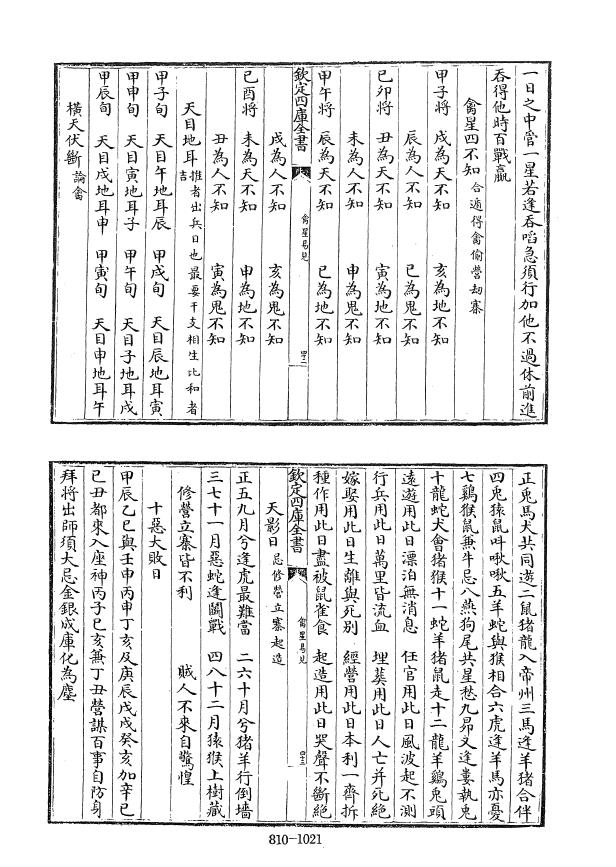 一日之中管一星若逢吞啗急須行加他不過休前進
吞得他時百戰贏
禽星四不知 合適得禽偷營刼寨
甲子將 戌為天不知 亥為地不知
辰為人不知 巳為鬼不知
己卯將 丑為天不知 寅為地不知
未為人不知 申為鬼不知
甲午將 辰為天不知 巳為地不知
欽定四庫全書 禽星易見 四二
戌為人不知 亥為鬼不知
己酉將 未為天不知 申為地不知
丑為人不知 寅為鬼不知
天目地耳 推者出兵日也最要干支相生比和者吉
甲子旬 天目午地耳辰 甲戌旬 天目辰地耳寅
甲申旬 天目寅地耳子 甲午旬 天目子地耳戌
甲辰旬 天目戌地耳申 甲寅旬 天目申地耳午
橫天伏斷 論禽
正兎馬犬共同遊二鼠猪龍入帝州三馬逢羊猪合伴
四兎猿鼠叫啾啾五羊蛇與猴相合六虎逢羊馬亦憂
七鷄猴鼠兼牛忌八燕狗尾共星愁九昴又逢婁執兎
十龍蛇犬會猪猴十一蛇羊猪鼠走十二龍羊鷄兎頭
遠遊用此日漂泊無消息 任官用此日風波起不測
行兵用此日萬里皆流血 埋葬用此日人亡并死絶
嫁娶用此日生離與死别 經營用此日本利一齊拆
種作用此日盡被鼠雀食 起造用此日哭聲不斷絶
欽定四庫全書 禽星易見 四三
天影日 忌修營立寨起造
正五九月兮逢虎最難當 二六十月兮猪羊行倒墻
三七十一月惡蛇逢鬭戰 四八十二月猿猴上樹藏
修營立寨皆不利 賊人不來自驚惶
十惡大敗日
甲辰乙巳與壬申丙申丁亥及庚辰戊戌癸亥加辛巳
己丑都來入座神丙子己亥兼丁丑營謀百事自防身
拜將出師須大忌金銀成庫化為塵
810-1021